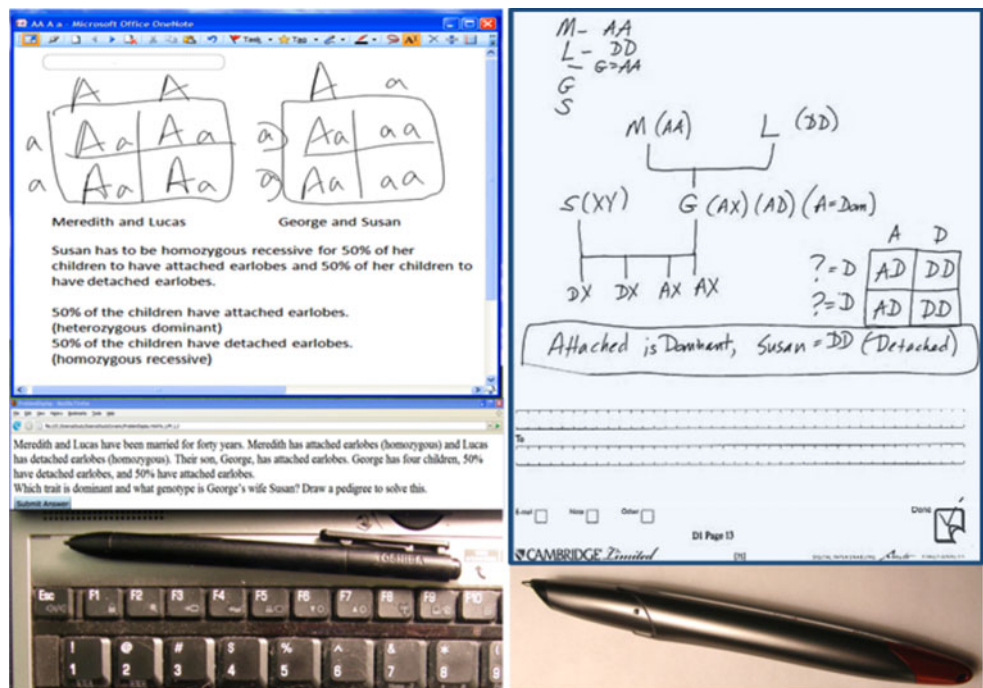 AA A a - Microsoft Office OneNote
Task
Tag
A A
a Aa Aa
a Aa Aa
A a
a Aa aa
a Aa aa
Meredith and Lucas
George and Susan
Susan has to be homozygous recessive for 50% of her
children to have attached earlobes and 50% of her children to
have detached earlobes.
50% of the children have attached earlobes.
(heterozygous dominant)
50% of the children have detached earlobes.
(homozygous recessive)
Meredith and Lucas have been married for forty years. Meredith has attached earlobes (homozygous) and Lucas
has detached earlobes (homozygous). Their son, George, has attached earlobes. George has four children, 50%
have detached earlobes, and 50% have attached earlobes.
Which trait is dominant and what genotype is George's wife Susan? Draw a pedigree to solve this.
Submit Answer
TOSHIBA
Esc F1 F2 F3 F4 F5 F6 F7 F8 F9 F10
! @ # $ % ^ & *
1 2 3 4 5 6 7 8 9
M- AA
L - DD
- G=AA
G
S
M (AA) L (DD)
S(XY) G (AX) (AD) (A=Dom)
DX DX AX AX
A D
?=D AD DD
?=D AD DD
Attached is Dominant, Susan = DD (Detached)
To
E-mail Note Other
Done
D1 Page 13
CAMBRIDGE Limited